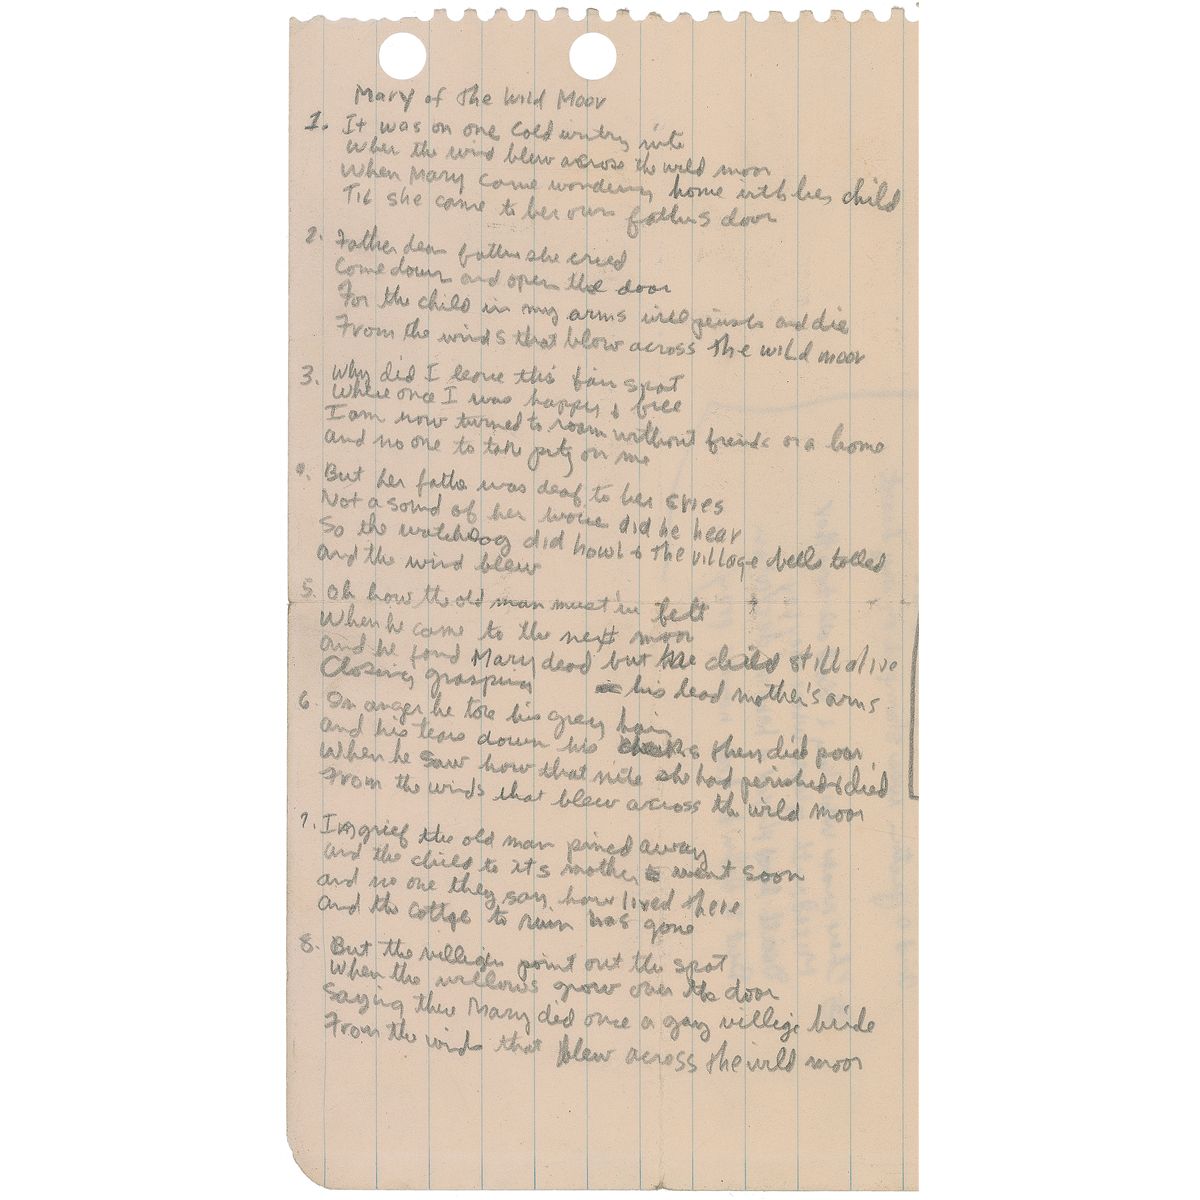 Mary of The Wild Moor
1. It was on one cold wintry nite
When the wind blew across the wild moor
When Mary come wondering home with her child
Til she came to her own fathers door
2. Father dear father she cried
Come down and open the door
For the child in my arms will perish and die
From the winds that blow across the wild moor
3. Why did I leave this fair spot
Where once I was happy & free
I am now turned to roam without freinds or a home
and no one to take pity on me
But her father was deaf to her cries
Not a sound of her voice did he hear
So the watchdog did howl & the village bells tolled
and the wind blew
5. Oh how the old man must in felt
When he came to the next moor
and he found Mary dead but the child still alive
Closing grasping his dead mother's arms
6. In anger he tore his grey hair
and his tears down his cheeks they did poor
When he saw how that nite she had perished & died
From the winds that blew across the wild moor
7. In grief the old man pined away
and the child to it's mother went soon
and no one they say, how lived there
and the cottge to ruin has gone
8. But the villiges point out the spot
When the willows grow over the door
Saying there Mary died once a gay villige bride
From the winds that blew across the wild moor